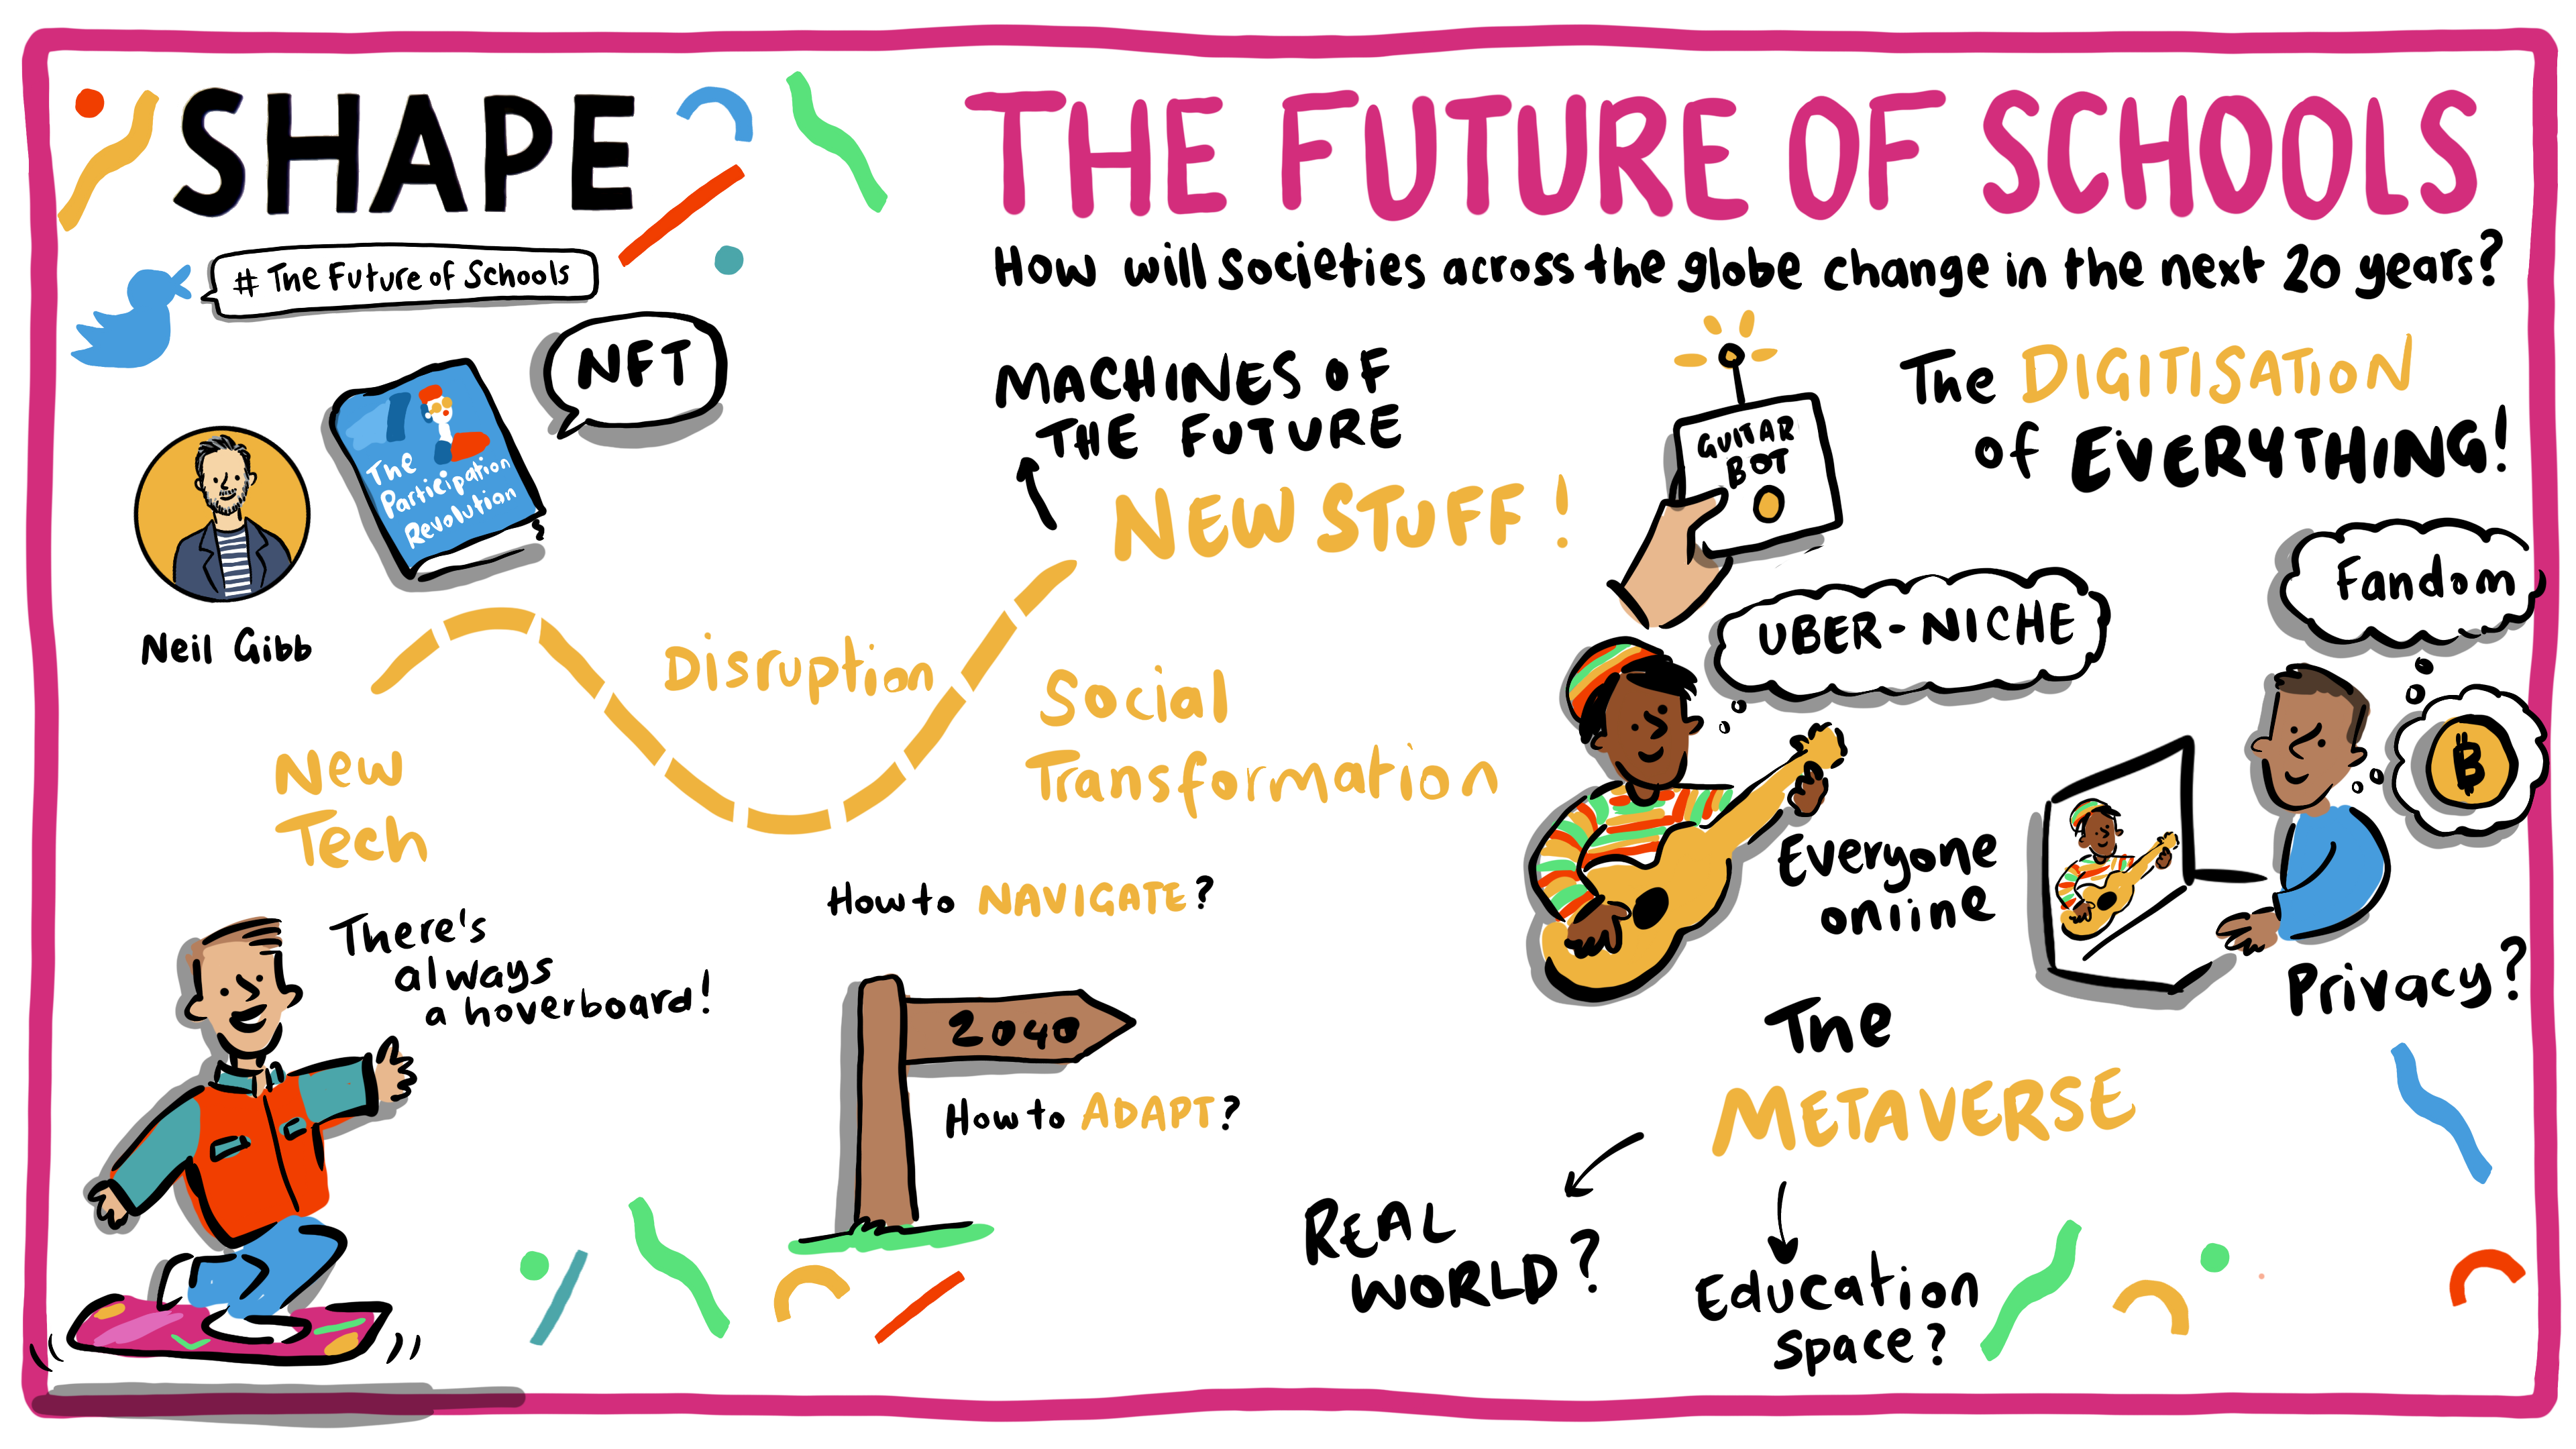 SHAPE
# The Future of Schools
NFT
The
Participation
Revolution
Neil Gibb
THE FUTURE OF SCHOOLS
How will societies across the globe change in the next 20 years?
MACHINES OF
THE FUTURE
NEW STUFF!
GUITAR
BOT
The DIGITISATION
of EVERYTHING!
New
Tech
Disruption
Social
Transformation
There's
always
a hoverboard!
How to NAVIGATE?
2040
How to ADAPT?
UBER-NICHE
Fandom
₿
Everyone
online
Privacy?
The
METAVERSE
REAL
WORLD?
Education
space?